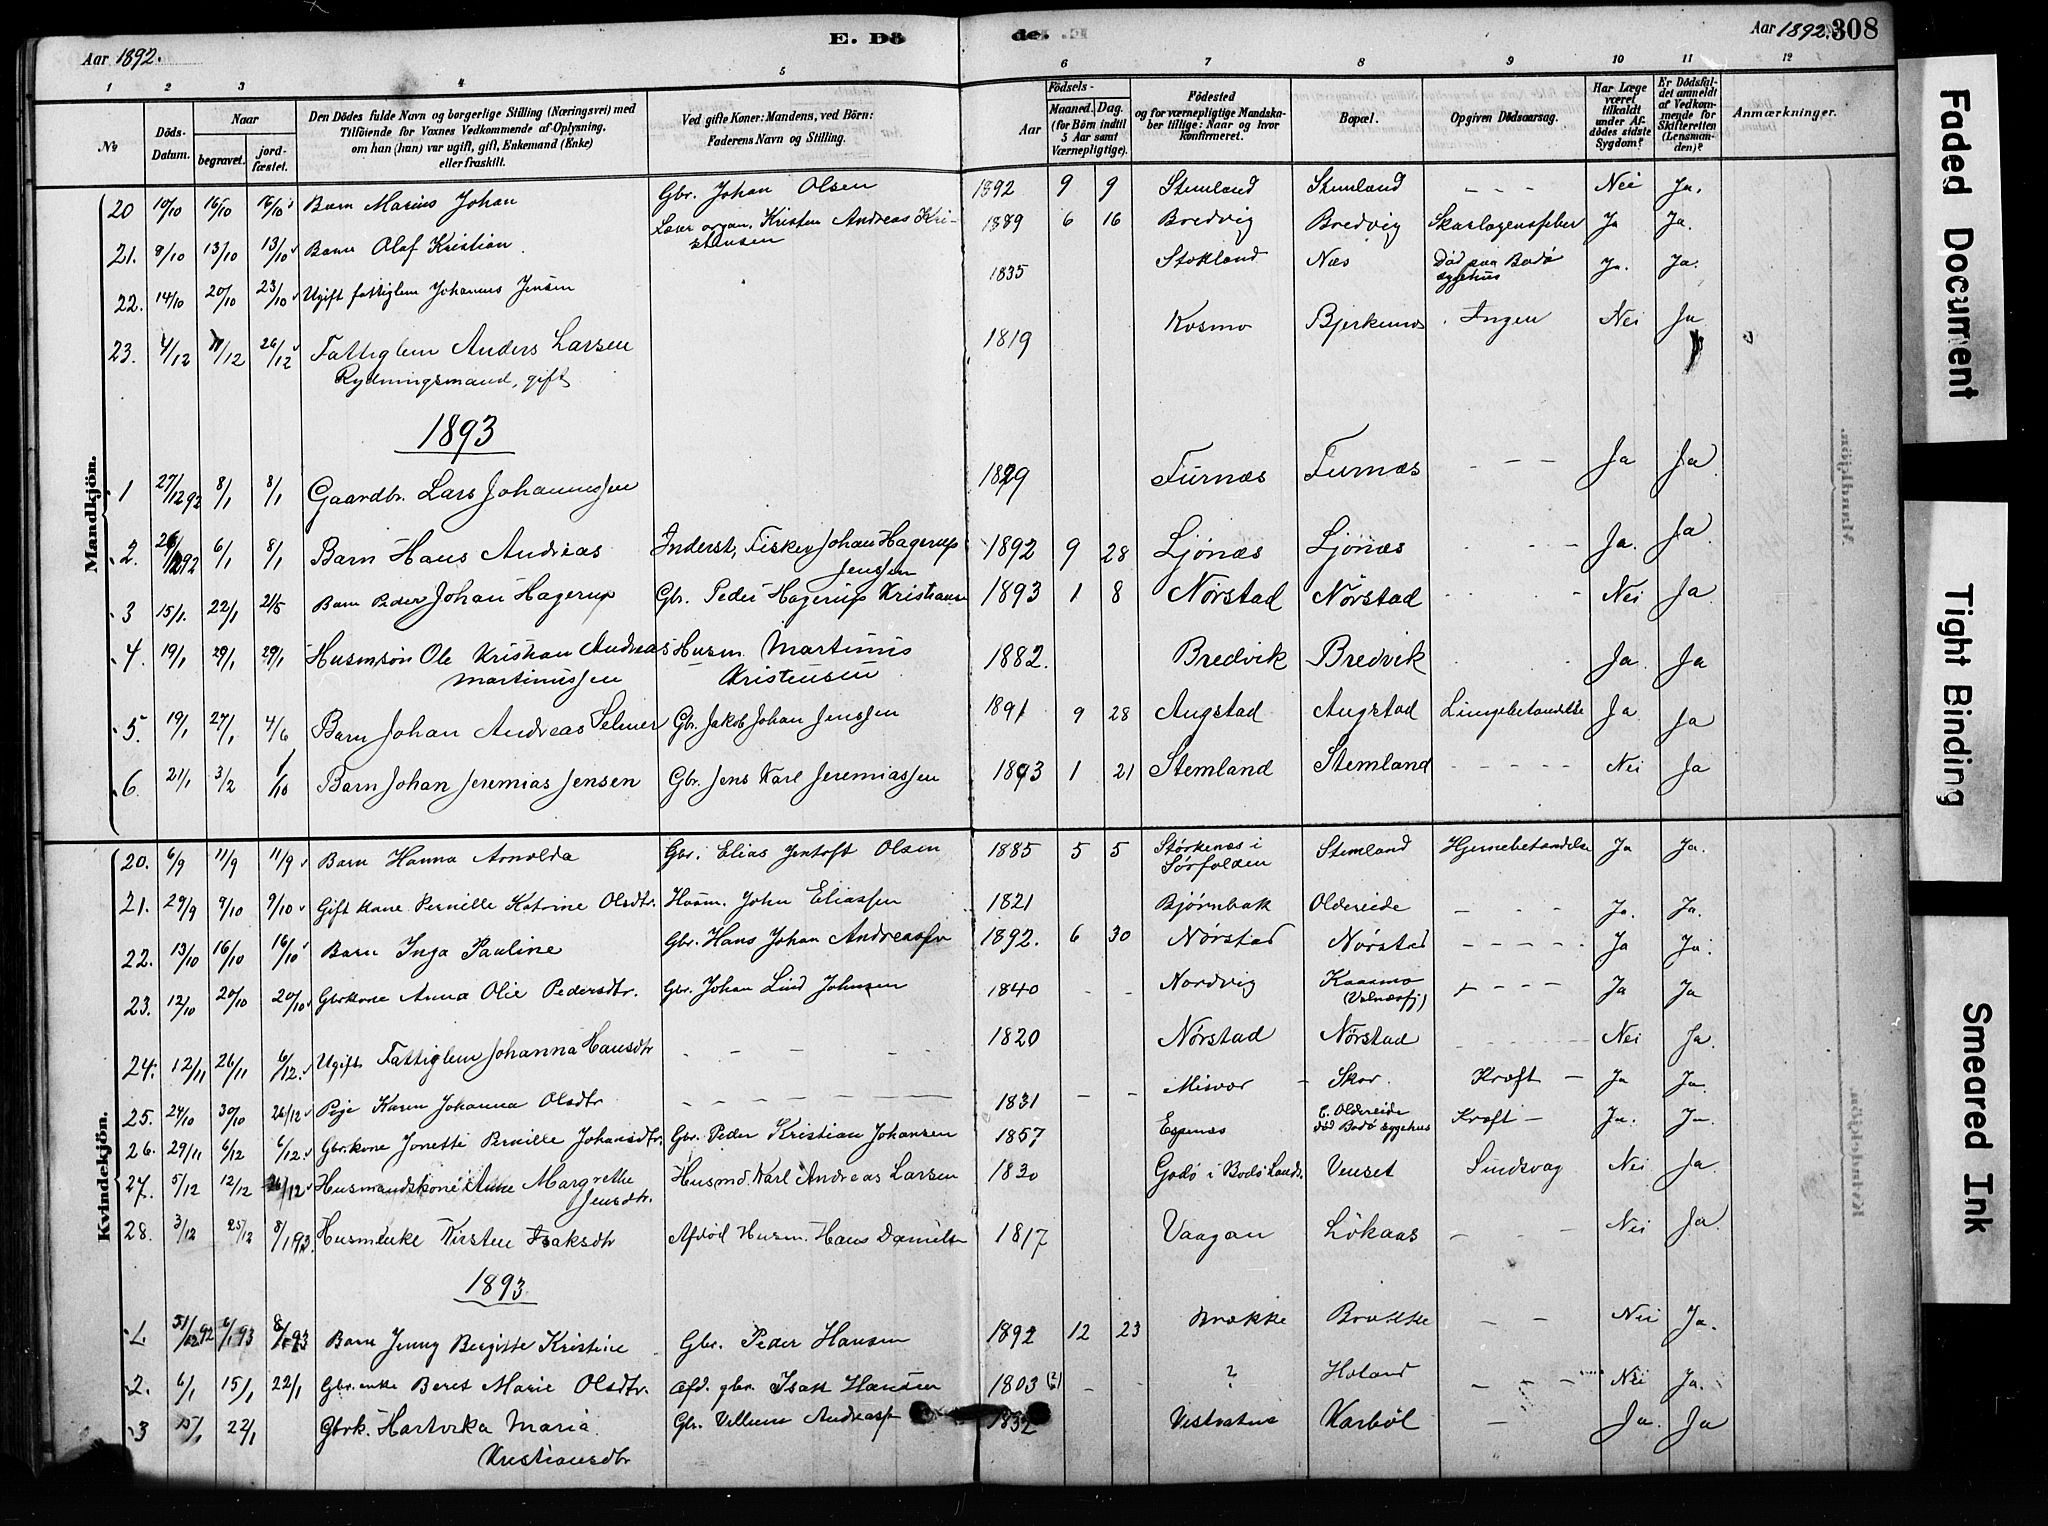 Aar 1892.
E. Dö
de.
Aar 1892. 308
1 2 3 4 5 6 7 8 9 10 11 12
No
Döds-Datum.
Naar
begravet.
jord-fæstet.
Den Dödes fulde Navn og borgerlige Stilling (Næringsvei) med
Tilföiende for Voxnes Vedkommende af Oplysning,
om han (hun) var ugift, gift, Enkemand (Enke)
eller fraskilt.
Ved gifte Koner: Mandens, ved Börn:
Faderens Navn og Stilling.
Födsels-
Aar
Maaned. Dag.
(for Börn indtil
5 Aar samt
Værnepligtige).
Födested
og for værnepligtige Mandska-
ber tillige: Naar og hvor
konfirmeret.
Bopæl.
Opgiven Dödsaarsag.
Har Læge
været
tilkaldt
under Af-
dödes sidste
Sygdom?
Er Dödsfal-
det anmeldt
af Vedkom-
mende for
Skifteretten
(Lensman-
den)?
Anmærkninger.
Mandkjön.
20 10/10 16/10 16/10 Barn Marius Johan Gbr. Johan Olsen 1892 9 9 Stemland Stemland - - - Nei Ja.
21. 8/10 13/10 13/10 Barn Olaf Kristian Lærer organ. Kristen Andreas Kri-
stensen 1889 6 16 Bredvig Bredvig Skarlagensfeber Ja Ja.
22. 14/10 20/10 23/10 Ugift fattiglem Johannes Jensen 1835 Stokland Næs Död paa Bodø
sygehus Ja. Ja.
23. 4/12 11/12 26/12 Fattiglem Anders Larsen 1819 Kosmo Bjerkenes Ingen Nei Ja
Rydningsmand, gift
1893
1 27/12 92 8/1 8/1 Gaardbr. Lars Johannessen 1829 Furnæs Furnæs - - - Ja Ja
2. 26/12 92 6/1 8/1 Barn Hans Andreas Inderst, Fisker Johan Hagerup
Jenssen 1892 9 28 Ljönæs Ljönæs Ja. Ja.
3 15/1. 22/1 21/5 Barn Peder Johan Hagerup Gbr. Peder Hagerup Kristiansen 1893 1 8 Nörstad Nörstad Nei Ja
4. 19/1 29/1 29/1 Husmsön Ole Kristian Andreas Husm. Martinus 1882. Bredvik Bredvik Ja. Ja
Martinussen Kristensen
5. 19/1 27/1 4/6 Barn Johan Andreas Selmer Gbr. Jakob Johan Jenssen 1891 9 28 Augstad Augstad Lungebetændelse Ja Ja
6. 21/1 3/2 1/10 Barn Johan Jeremias Jensen Gbr. Jens Karl Jeremiassen 1893 1 21 Stemland Stemland - - - - - Nei Ja
Kvindekjön.
20. 6/9 11/9 11/9 Barn Hanna Arnolda Gbr. Elias Jentoft Olsen 1885 5 5 Størkenæs i
Sørfolden Stemland Hjernebetændelse Ja Ja.
21. 29/9 9/10 9/10 Gift kone Pernille Katrine Olsdtr. Husm. John Eliassen 1821 Bjørnbak Oldereide - - - Ja. Ja.
22. 13/10 16/10 16/10 Barn Inga Pauline Gbr. Hans Johan Andreassen 1892. 6 30 Nørstad Nørstad - - - - - Ja Ja.
23. 12/10 20/10 20/10 Gbrkone Anna Olie Pedersdtr. Gbr. Johan Lind Johnsen 1840 - - Nordvig Kaasmo
(Valnæsfj) - - - - Ja Ja
24. 12/11 26/11 6/12. Ugift Fattiglem Johanna Hansdtr - - - - 1820 Nørstad Nørstad - - - - - Nei Ja.
25. 24/10 30/10 26/12 Pige Karen Johanna Olsdtr - - - - - - 1831 - - Misvær - Skar. Kræft - Ja Ja.
26. 29/11 6/12 6/12. Gbrkone Jonette Pernille Johansdtr. Gbr. Peder Kristian Johansen 1857 Espenæs E. Oldereide
död Bodø sygehus Kræft - Ja. Ja.
27. 5/12 12/12 26/12 Husmandskone Anne Margrethe
Jensdtr. Husmd. Karl Andreas Larsen 1830 Godø i Bodø Lands. Venset Sindsvag Nei Ja.
28. 3/12 25/12 8/1 93. Husmenke Kirsten Isaksdtr Afdöd Husm. Hans Danielsen 1817 Vaagan Lökaas - - - Nei Ja
1893.
1. 31/12 92 6/1 93 8/1 93 Barn Jenny Bergitte Kristine Gbr. Peder Hansen 1892 12 23 Brække Brække - - Nei Ja.
2. 6/1 15/1 22/1 Gbr.enke Beret Marie Olsdtr. Afd. gbr. Isak Hansen 1803 (?) - ? Holand - - - Nei Ja.
3 15/1 22/1 Gbrk. Hartvika Maria Gbr. Villum Andreassen 1832 Vestvatne Karböl - Ja. Ja
Kristiansdtr
Mandkjön.
Kvindekjön.
Faded Document
Tight Binding
Smeared Ink